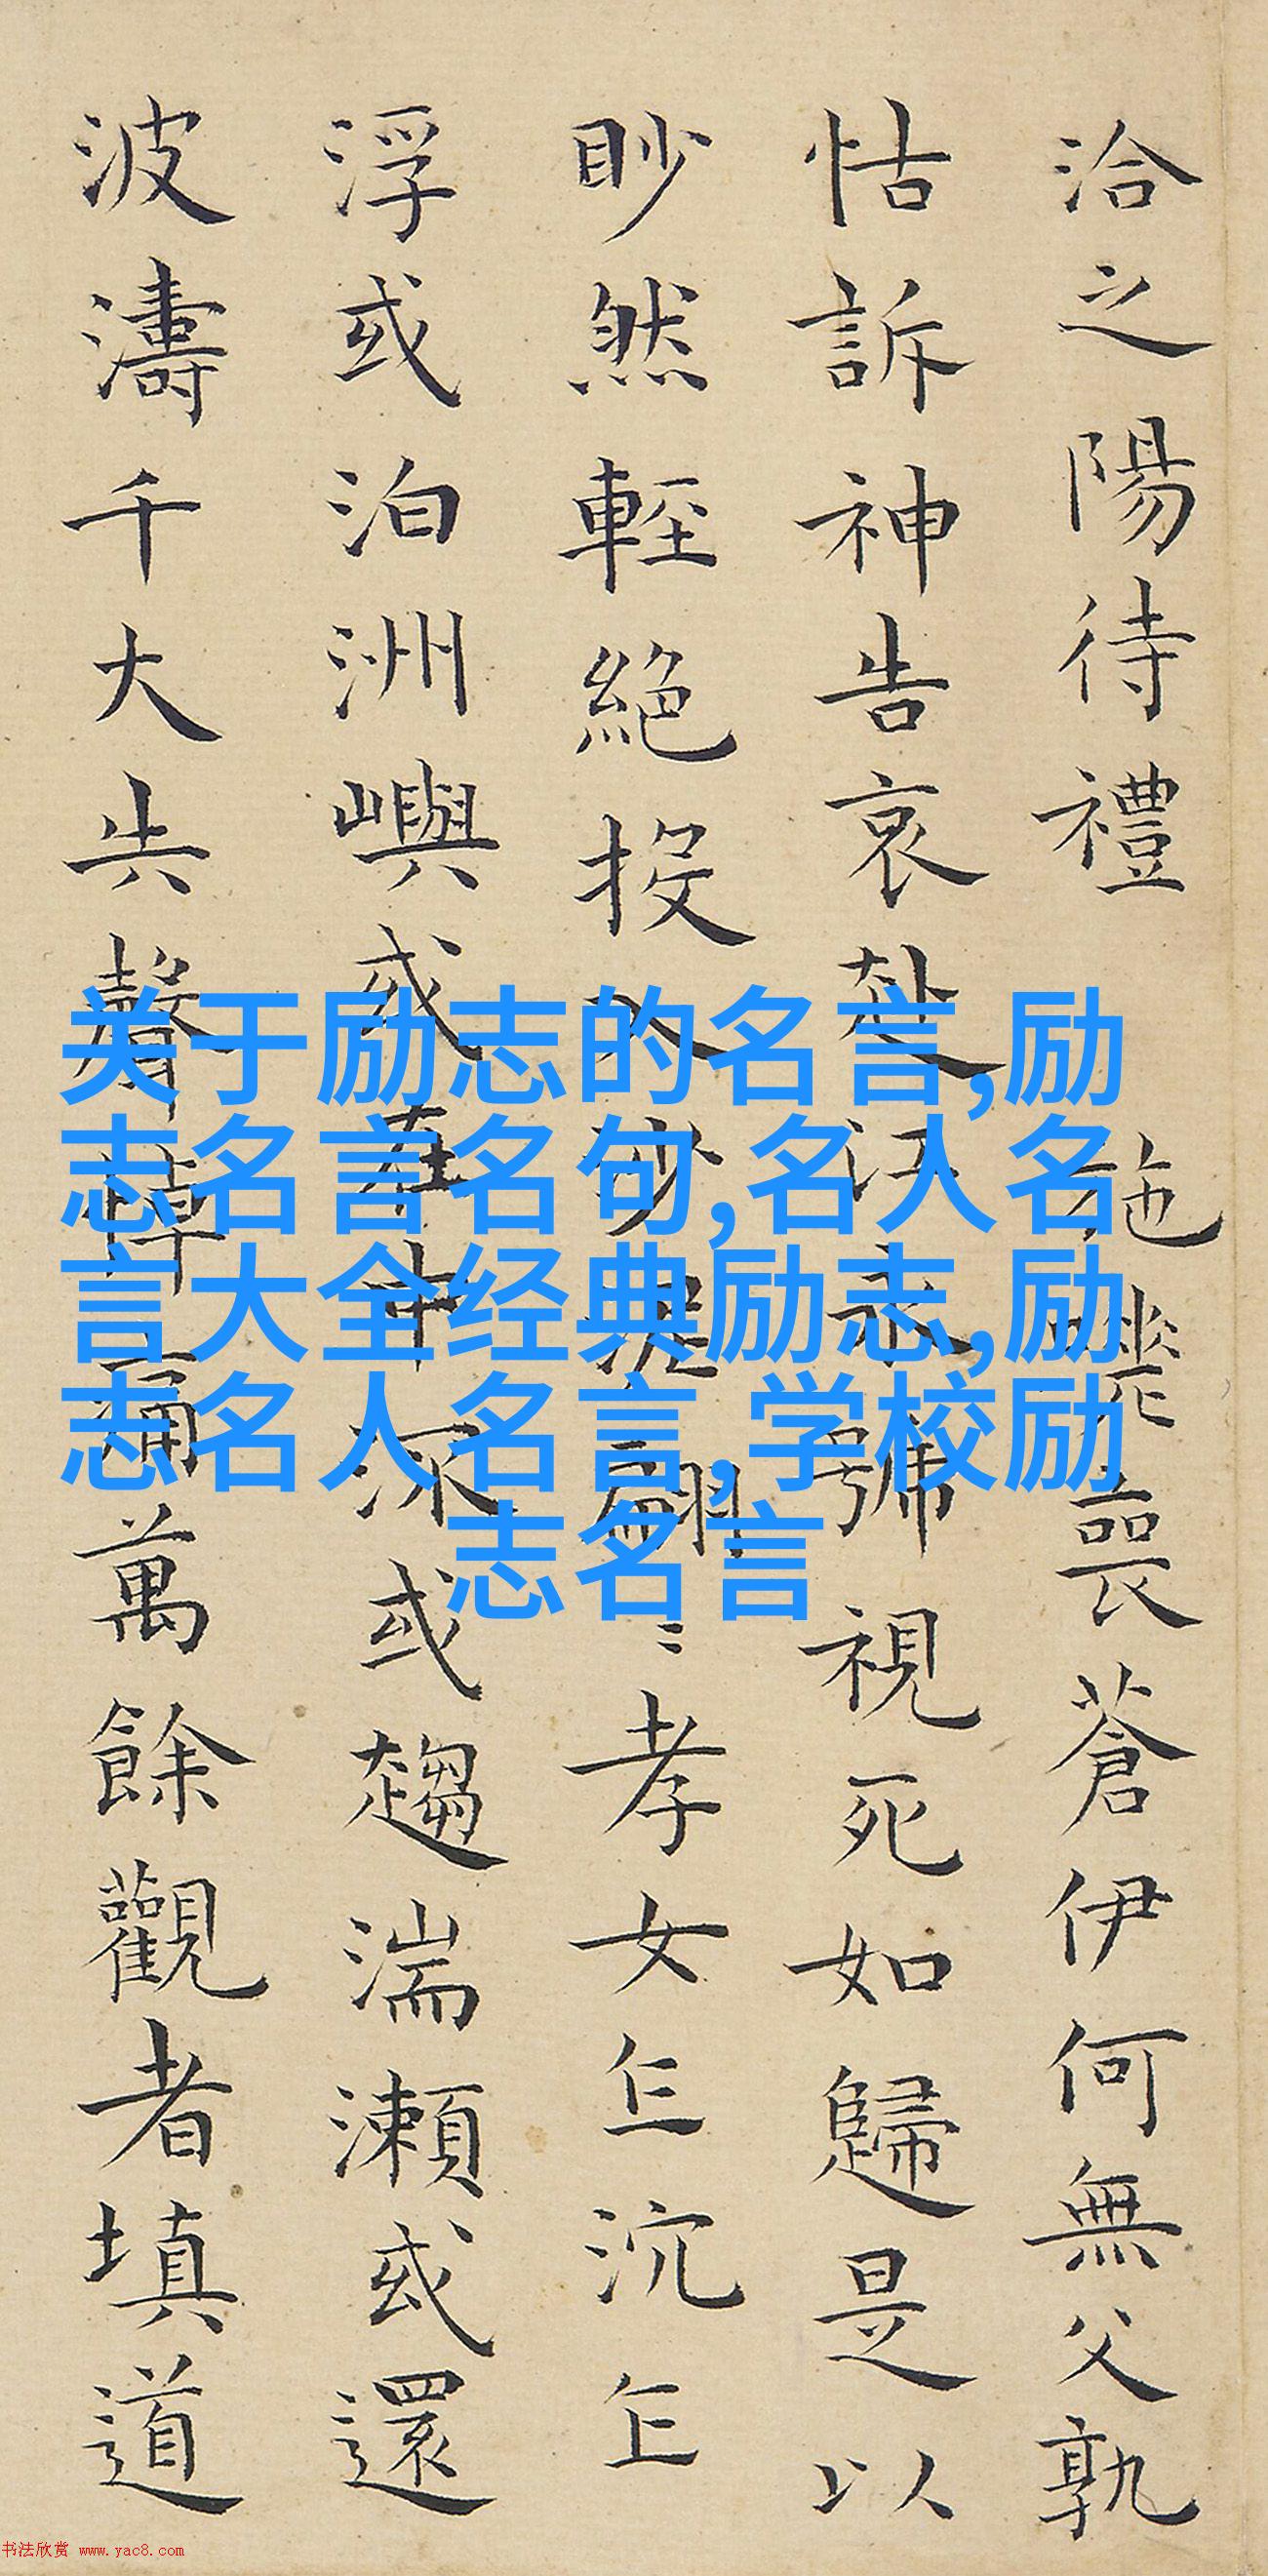 洽之陽待禮施嗟喪蒼伊何無父孰
怙訴神告哀赴江永號視死如歸是以
眇然輕絕投入沙泥翩〻孝女乍沉乍
浮或泊洲嶼或在中流或趨湍瀨或還
波濤千大失聲悼痛萬餘觀者填道
关于励志的名言,励
志名言名句,名人名
言大全经典励志,励
志名人名言,学校励
志名言
书法欣赏 www.yac8.com